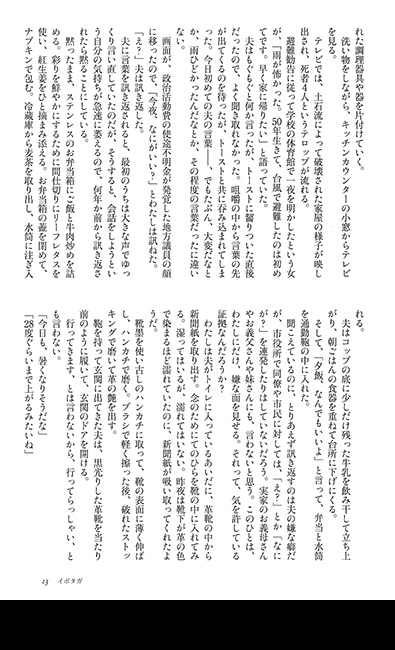 れた調理器具や器を片付けていく。
洗い物をしながら、キッチンカウンターの小窓からテレビ
を見る。
テレビでは、土石流によって破壊された家屋の様子が映し
出され、死者4人というテロップが流れる。
避難勧告に従って学校の体育館で一夜を明かしたという女
が、「雨が怖かった。50年生きて、台風で避難したのは初め
てです。早く家に帰りたい」と語っていた。
夫はもぐもぐと何か言ったが、トーストに齧りついた直後
だったので、よく聞き取れなかった。咀嚼の中から言葉の先
が出てくるのを待ったが、トーストと共に呑み込まれてしま
った。今日初めての夫の言葉――、でもたぶん、大変だなと
か、雨ひどかったんだなとか、その程度の言葉だったに違い
ない。
画面が、政治活動費の使途不明金が発覚した地方議員の顔
に移ったので、「今夜、なにがいい？」とわたしは訊ねた。
「え？」夫は訊き返した。
夫に言葉を訊き返されると、最初のうちは大きな声でゆっ
くり言い直していたのだが、そうすると、会話をしようとい
う自分の気持ちが急速に萎えるので、何年か前から訊き返さ
れたら黙ることにしている。
黙ったまま、ステンレスのお弁当箱にご飯と牛肉炒めを詰
める。彩りを鮮やかにするために間仕切りにリーフレタスを
使い、紅生姜をひと摘まみ添える。お弁当箱の蓋を閉めて、
ナプキンで包む。冷蔵庫から麦茶を取り出し、水筒に注ぎ入
れる。
夫はコップの底に少しだけ残った牛乳を飲み干して立ち上
がり、朝ごはんの食器を重ねて台所に下げにくる。
そして、「夕飯、なんでもいいよ」と言って、弁当と水筒
を通勤鞄の中に入れた。
聞こえているのに、とりあえず訊き返すのは夫の嫌な癖だ
が、市役所で同僚や市民に対しては、「え？」とか「なに
が？」を連発したりはしていないだろう。実家のお義母さん
やお義父さんや妹さんにも、言わないと思う。このひとは、
わたしにだけ、嫌な面を見せる。それって、気を許している
証拠なんだろうか？
わたしは夫がトイレに入っているあいだに、革靴の中から
新聞紙を取り出す。念のためにてのひらを靴の中に入れてみ
る。湿ってはいるが、濡れてはいない。昨夜は靴下が革の色
で染まるほど濡れていたのに、新聞紙が吸い取ってくれたよ
うだ。
靴墨を使い古しのハンカチに取って、靴の表面に薄く伸ば
し、ハンカチで磨く。ブラシで軽く擦った後、破れたストッ
キングで磨いて革の艶を出す。
鞄を持って玄関に出てきた夫は、黒光りした革靴を当たり
前のように履いて、玄関のドアを開ける。
行ってきます、とは言わないから、行ってらっしゃい、と
も言わない。
「今日も、暑くなりそうだな」
「28度ぐらいまで上がるみたいね」
13　イボタガ